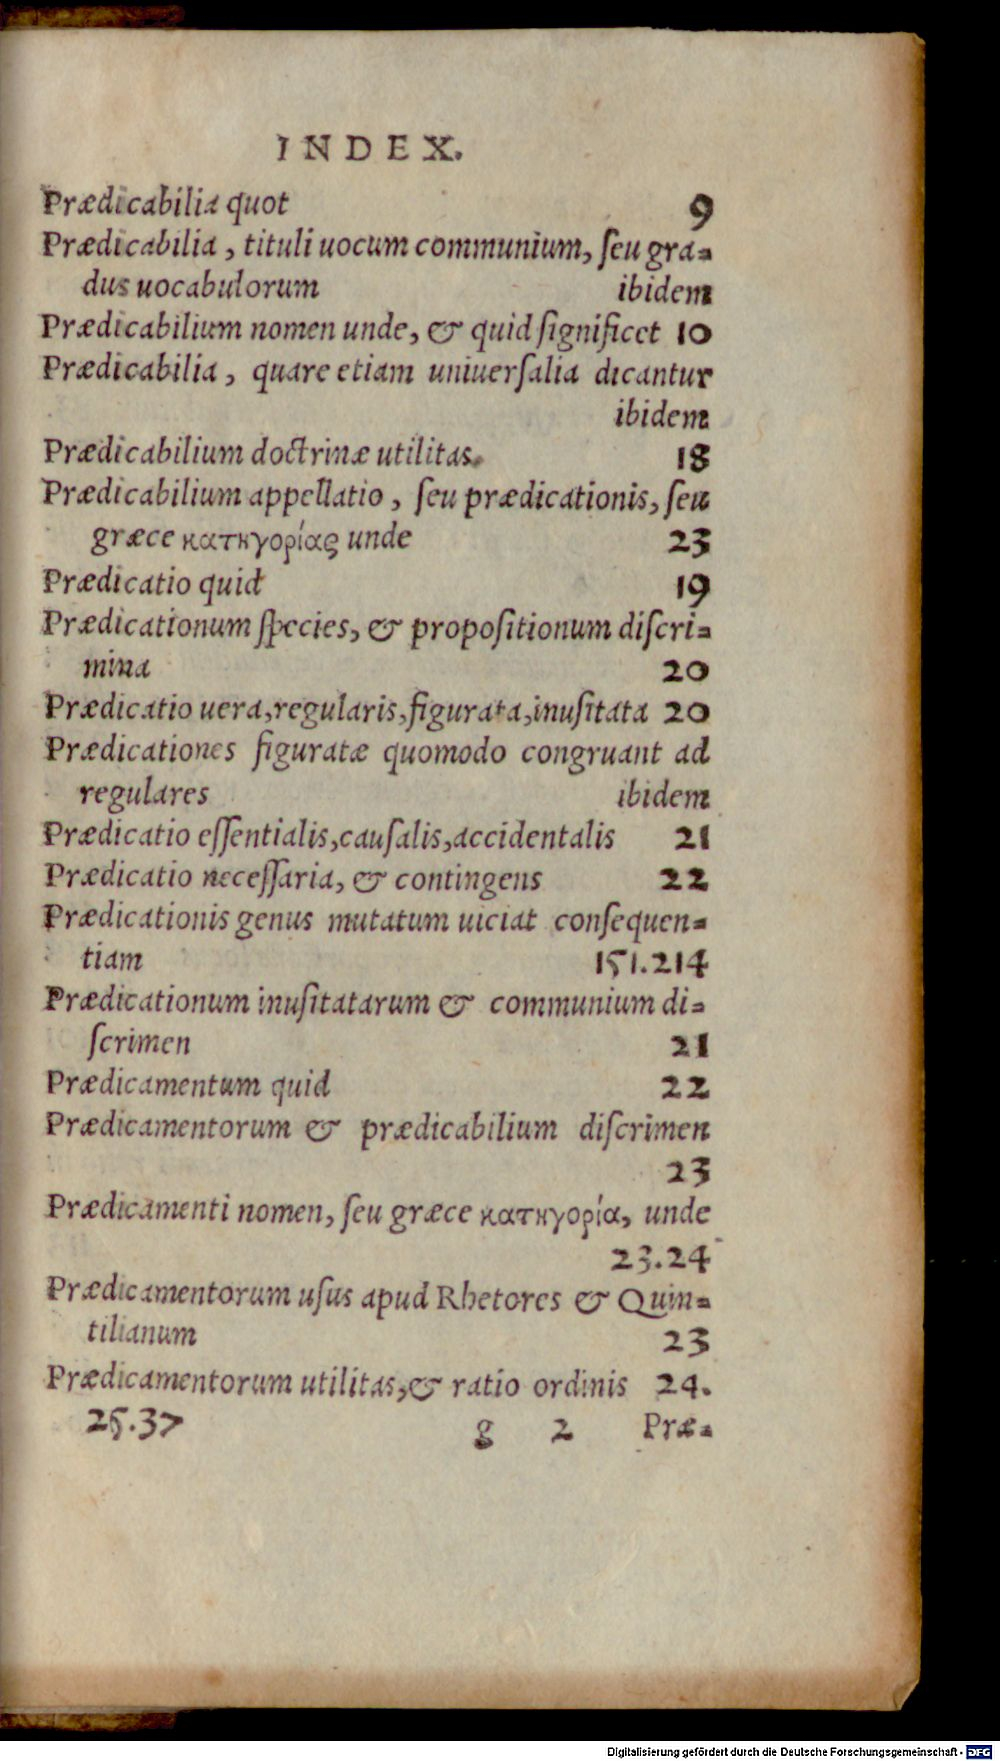 INDEX.
Prædicabilia quot 9
Prædicabilia, tituli uocum communium, ſeu gra-
dus uocabulorum ibidem
Prædicabilium nomen unde, & quid ſignificet 10
Prædicabilia, quare etiam uniuerſalia dicantur
ibidem
Prædicabilium doctrinæ utilitas. 18
Prædicabilium appellatio, ſeu prædicationis, ſeu
græce κατηγορίας unde 23
Prædicatio quid 19
Prædicationum ſpecies, & propoſitionum diſcri-
mina 20
Prædicatio uera, regularis, figurata, inuſitata 20
Prædicationes figuratæ quomodo congruant ad
regulares ibidem
Prædicatio eſſentialis, cauſalis, accidentalis 21
Prædicatio neceſſaria, & contingens 22
Prædicationis genus mutatum uiciat conſequen-
tiam 151.214
Prædicationum inuſitatarum & communium di-
ſcrimen 21
Prædicamentum quid 22
Prædicamentorum & prædicabilium diſcrimen
23
Prædicamenti nomen, ſeu græce κατηγορία, unde
23.24
Prædicamentorum uſus apud Rhetores & Quin-
tilianum 23
Prædicamentorum utilitas, & ratio ordinis 24.
25.37 g 2 Præ-
Digitalisierung gefördert durch die Deutsche Forschungsgemeinschaft - DFG